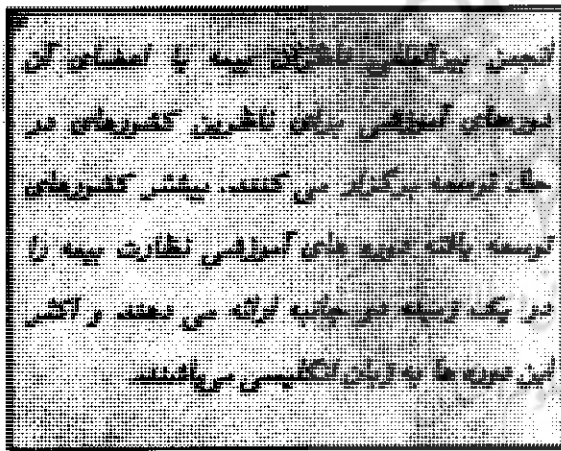 انجمن بین‌المللی ناظرین بیمه یا اعضای آن
دوره‌های آموزشی برای ناظرین کشورهای در
حال توسعه برگزار می کنند. بیشتر کشورهای
توسعه یافته دوره های آموزشی نظارت بیمه را
در یک زمینه دو جانبه ارائه می دهند و اکثر
این دوره ها به زبان انگلیسی می‌باشند.